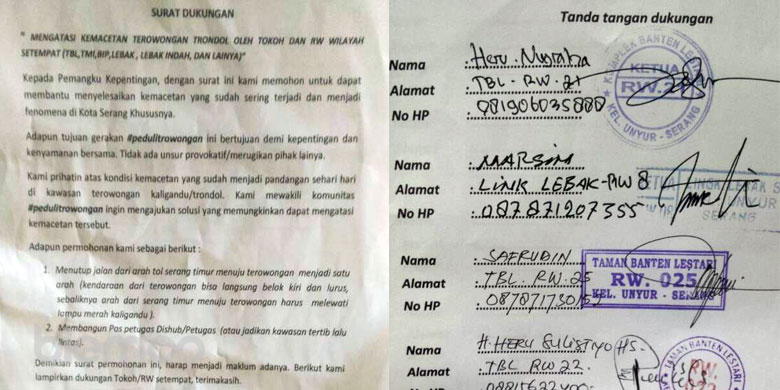 SURAT DUKUNGAN
" MENGATASI KEMACETAN TEROWONGAN TRONDOL OLEH TOKOH DAN RW WILAYAH
SETEMPAT (TBL,TMI,BIP,LEBAK , LEBAK INDAH, DAN LAINYA)"
Kepada Pemangku Kepentingan, dengan surat ini kami memohon untuk dapat
membantu menyelesaikan kemacetan yang sudah sering terjadi dan menjadi
fenomena di Kota Serang Khususnya.
Adapun tujuan gerakan #pedulitrowongan ini bertujuan demi kepentingan dan
kenyamanan bersama. Tidak ada unsur provokatif/merugikan pihak lainya.
Kami prihatin atas kondisi kemacetan yang sudah menjadi pandangan sehari hari
di kawasan terowongan kaligandu/trondol. Kami mewakili komunitas
#pedulitrowongan ingin mengajukan solusi yang memungkinkan dapat mengatasi
kemacetan tersebut.
Adapun permohonan kami sebagai berikut :
1. Menutup jalan dari arah tol serang timur menuju terowongan menjadi satu
arah (kendaraan dari terowongan bisa langsung belok kiri dan lurus,
sebaliknya arah dari serang timur menuju terowongan harus melewati
lampu merah kaligandu ).
2. Membangun Pos petugas Dishub/Petugas (atau jadikan kawasan tertib lalu
lintas).
Demikian surat permohonan ini, harap menjadi maklum adanya. Berikut kami
lampirkan dukungan Tokoh/RW setempat, terimakasih.
Tanda tangan dukungan
Nama : Heru
Alamat : TBL - RW. 21
No HP : 081906035888
KOMPLEK BANTEN LESTARI
KETUA
RW.21
KEL. UNYUR - SERANG
Nama : MARSIM
Alamat : LINK LEBAK-RW 8
No HP : 087871207355
KETUA
SERANG
Nama : SAFRUDIN
Alamat : TBL RW. 25
No HP
TAMAN BANTEN LESTARI
RW. 025
KEL. UNYUR - SERANG
Nama : H. HERU SULISTIYO HS.
Alamat : TBL RW 22.
No HP
TAMAN BANTEN LESTARI
RW.